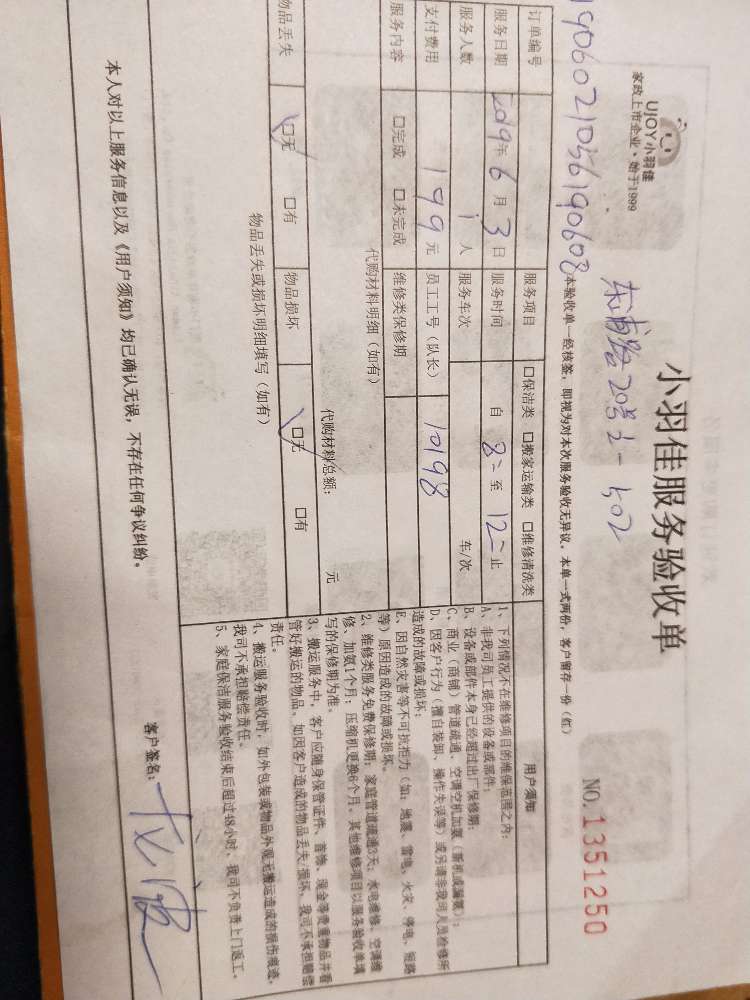 UJOY小羽佳
家政上市企业·始于1999
小羽佳服务验收单
NO.1351250
本验收单一经核签,即视为对本次服务验收无异议,本单一式两份,客户留存一份(红)
订单编号
190602105619060
服务项目 □保洁类 □搬家运输类 □维修清洗类
服务日期 2019年 6 月 3 日 服务时间 自 8: 至 12: 止
服务人数 1 人 服务车次 车/次
支付费用 199 元 员工工号(队长) 10198
服务内容 □完成 □未完成 维修类保修期
代购材料明细(如有)
代购材料总额: 元
物品丢失 □无 □有 物品损坏 □无 □有
物品丢失或损坏明细填写(如有)
用户须知
1、下列情况不在维修项目的维保范围之内:
A、非我司员工提供的设备或部件;
B、设备或部件本身已经超过出厂保修期;
C、商业(商铺)管道疏通、空调空机加氨(新机或漏氨);
D、因客户行为(擅自装卸、操作失误等)或另请非我司人员检修所
造成的故障或损坏;
E、因自然灾害等不可抗拒力(如:地震、雷电、火灾、停电、短路
等)原因造成的故障或损坏。
2、维修类服务免费保修期:家庭管道疏通3天;水电维修、空调维
修、加氨1个月;压缩机更换6个月。其他维修项目以服务验收单填
写的保修期为准。
3、搬运服务中,客户应随身保管证件、首饰、现金等贵重物品并看
管好搬运的物品。如因客户造成的物品丢失/损坏,我司不承担赔偿
责任。
4、搬运服务验收时,如外包装或物品外观无搬运造成的损伤痕迹,
我司不承担赔偿责任。
5、家庭保洁服务验收结束后超过48小时,我司不负责上门返工。
本人对以上服务信息以及《用户须知》均已确认无误,不存在任何争议纠纷。
客户签名: